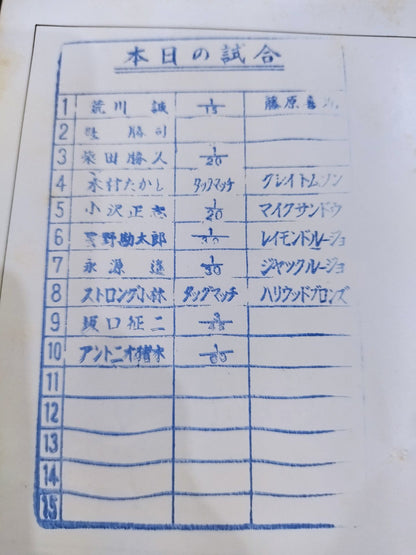 本日の試合
1 荒川 誠 1/15 藤原喜
2 勝司
3 柴田勝久 1/20
4 木村たかし タッグマッチ クレイトムソン
5 小沢正志 1/20 マイクサンドウ
6 星野勘太郎 1/30 レイモンドルージョ
7 永源 遙 1/30 ジャックルージョ
8 ストロング小林 タッグマッチ ハリウッドブロンズ
9 坂口征二 3/45
10 アントニオ猪木 1/60
11
12
13
14
15